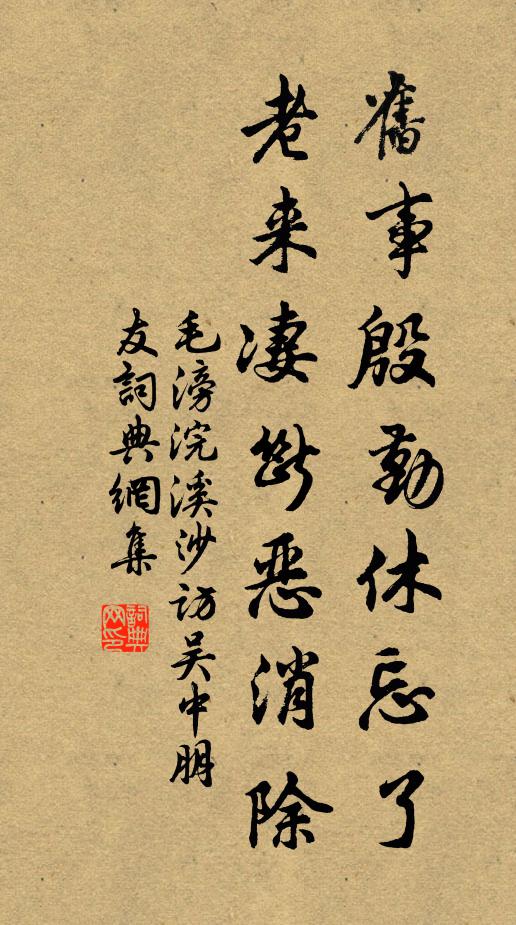 舊事殷勤休忘了
老来凄斷惡消除
毛滂浣溪沙访吴中朋
友詞典網集
詞典
网印